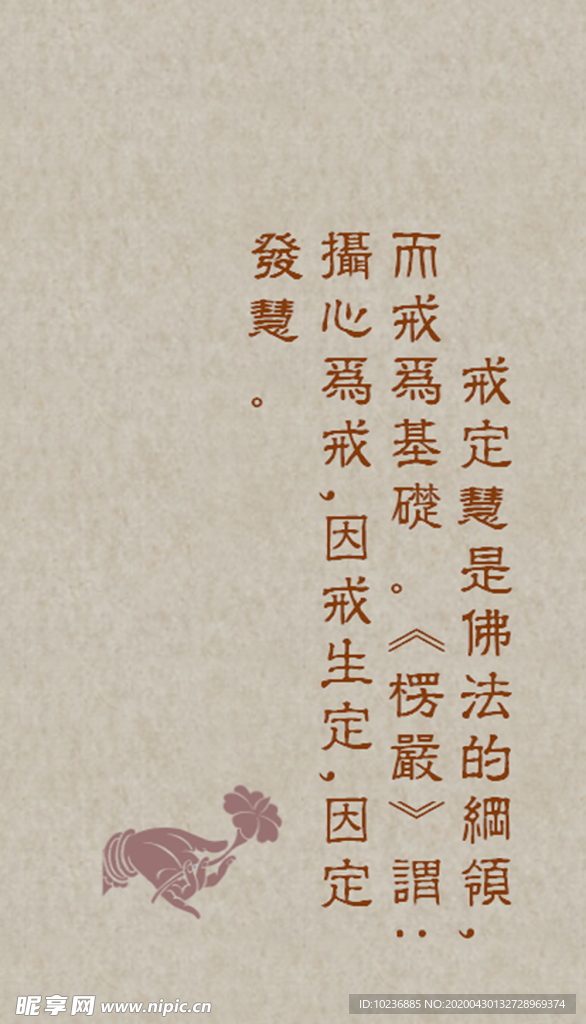 戒定慧是佛法的綱領，
而戒爲基礎。《楞嚴》謂：
攝心爲戒，因戒生定，因定
發慧。
昵享网 www.nipic.cn
ID:10236885 NO:20200430132728969374